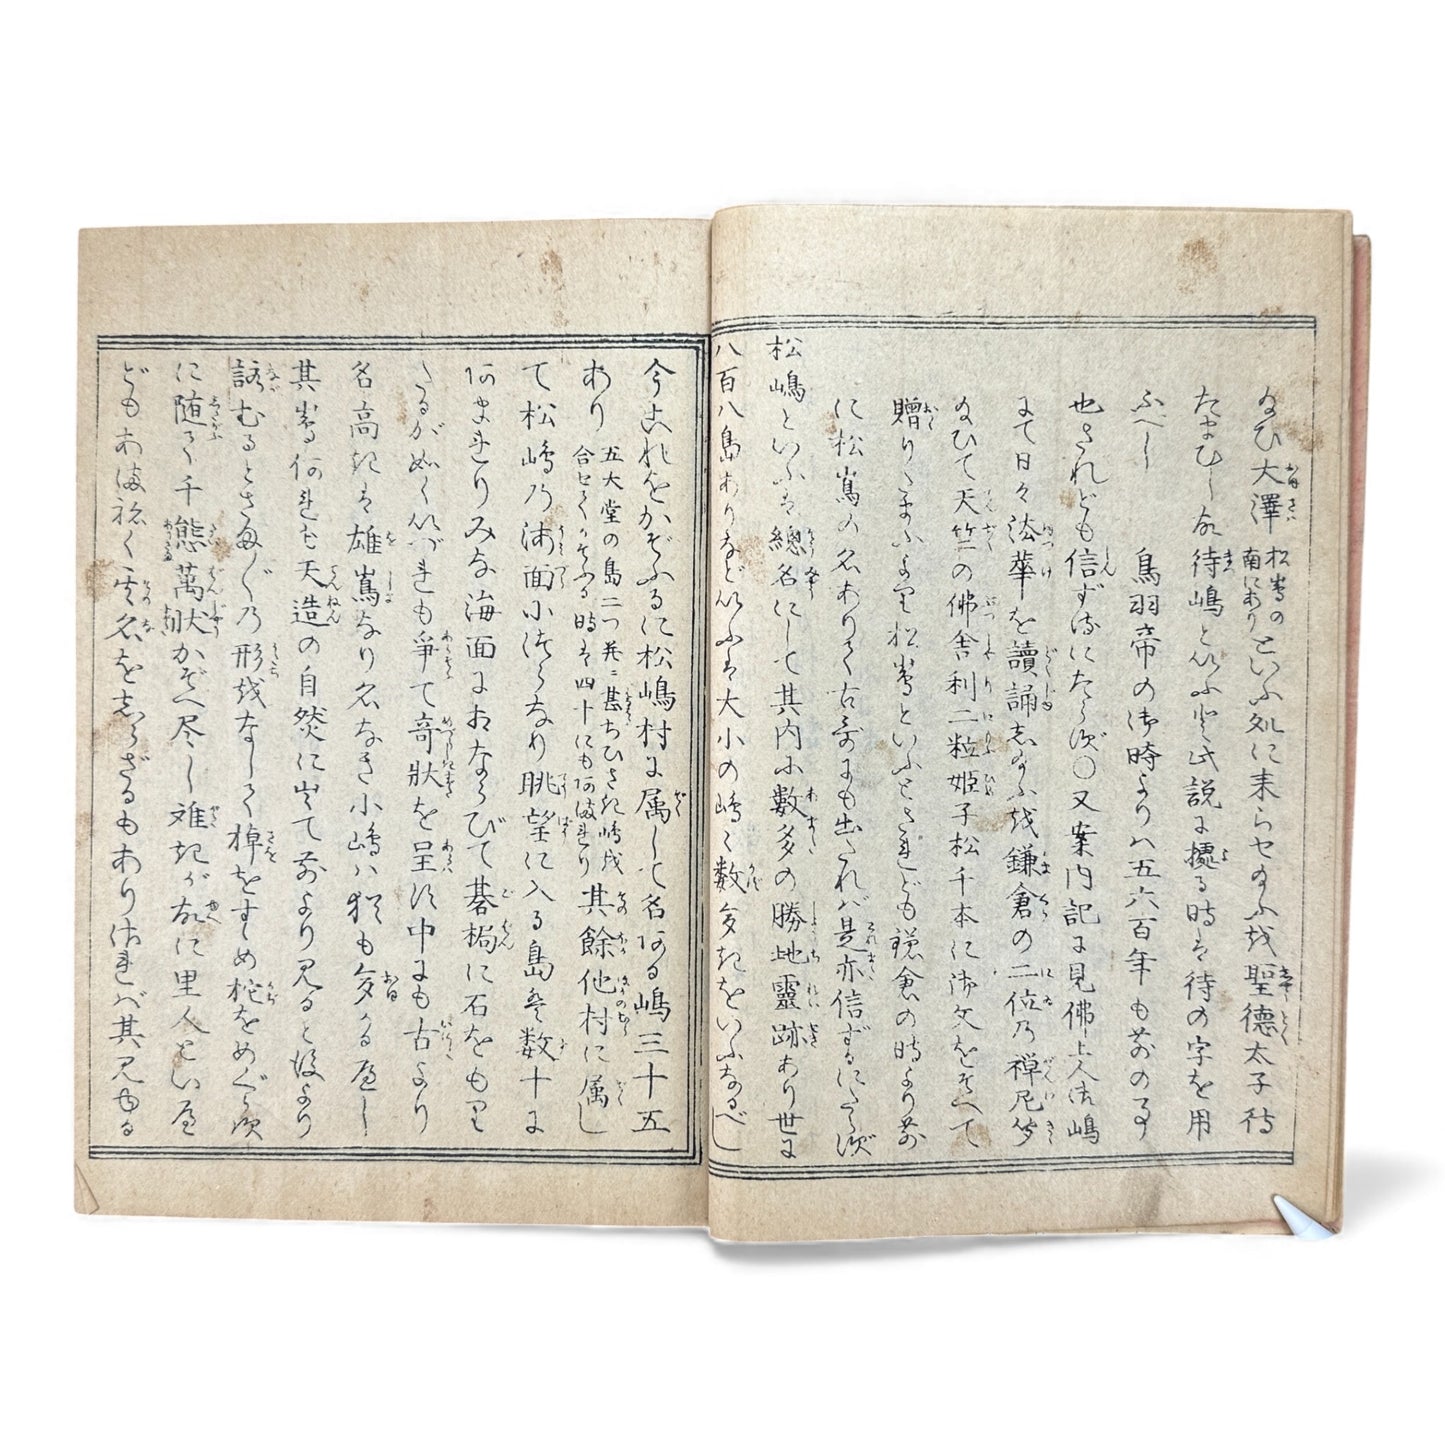 給ひ大澤松嶌の南にありといふ処に来らせ給ふ故聖徳太子待
たまひし故待嶋といふ也此説に據る時は待の字を用
ふべし
鳥羽帝の御時よりハ五六百年も前の事
也されども信ずるにたらず〇又案内記に見佛上人此嶋
にて日々法華を讀誦し給ふ故鎌倉の二位の禅尼
給ひて天竺の佛舎利二粒姫子松千本に御文をそへて
贈りたまふより松嶌といふとされども鎌倉の時より前
に松嶌の名ありて古哥にも出されバ是亦信ずるにたらず
松嶋といふは總名にして其内小数多の勝地靈跡あり世に
八百八島ありなどいふは大小の嶋々数多きをいふなるべし
今これをかぞふるに松嶋村に属して名ある嶋三十五
あり五大堂の島二つ并ニ甚ちひさき嶋を合セてかぞふる時は四十にもあまれり其餘他村に属し
て松嶋乃海面につらなり眺望に入る島は数十に
あまれりみな海面におならびて碁楊に石をもり
たるが如くいづれも爭て奇狀を呈す中にも古より
名高きは雄嶌なり名なき小嶋ハ猶も多かるべし
其嶌何れも天造の自然に出て前より見ると後より
詠むるとさまざまの形をなして棹をすゝめ柁をめぐらす
に随て千態萬狀かぞへ尽し難きが故に里人といへ
どもあまねく其名をしらざるもありけれバ其見ゆる